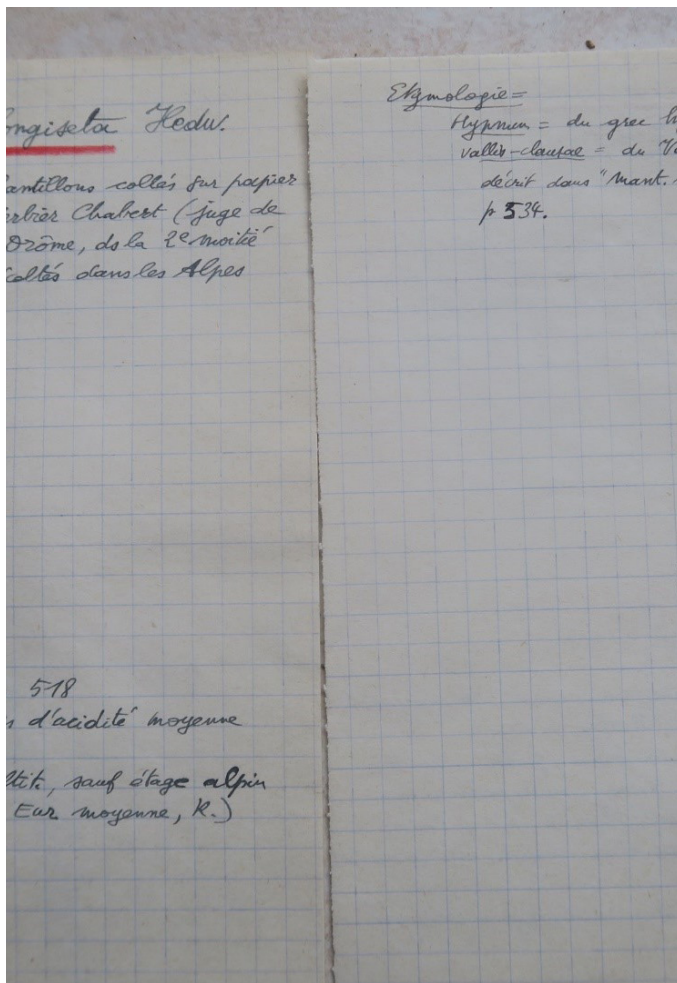 ongiseta Hedw.
antillons collés sur papier
erbier Chabert (juge de
Drôme, ds la 2e moitié
coltés dans les Alpes
518
s d'acidité moyenne
ltit., sauf étage alpin
Eur moyenne, R.)
Etymologie =
Hypnum = du grec h
vallis-clausae = du V
décrit dans "Mant.
p 534.